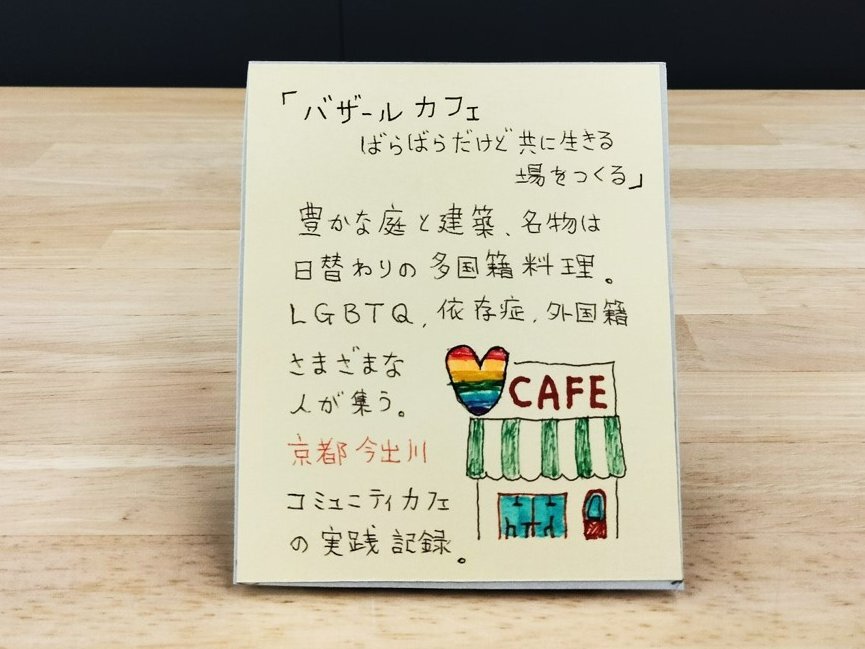 「バザールカフェ
ばらばらだけど共に生きる
場をつくる」
豊かな庭と建築、名物は
日替わりの多国籍料理。
LGBTQ,依存症,外国籍
さまざまな
人が集う。
CAFE
京都今出川
コミュニティカフェ
の実践記録。